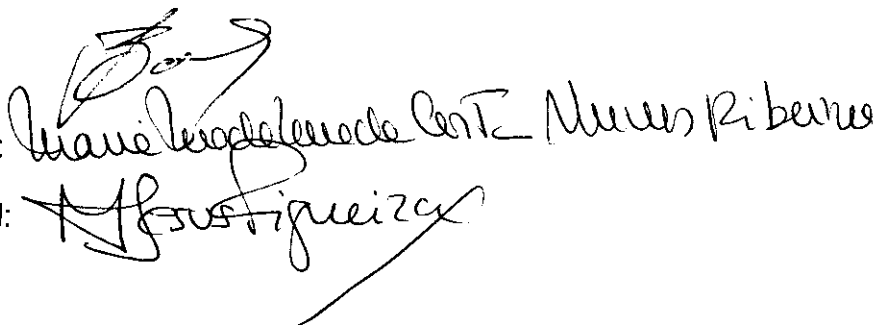 : Maria Madalena da Costa Nunes Ribeiro
: M Jesus Figueira